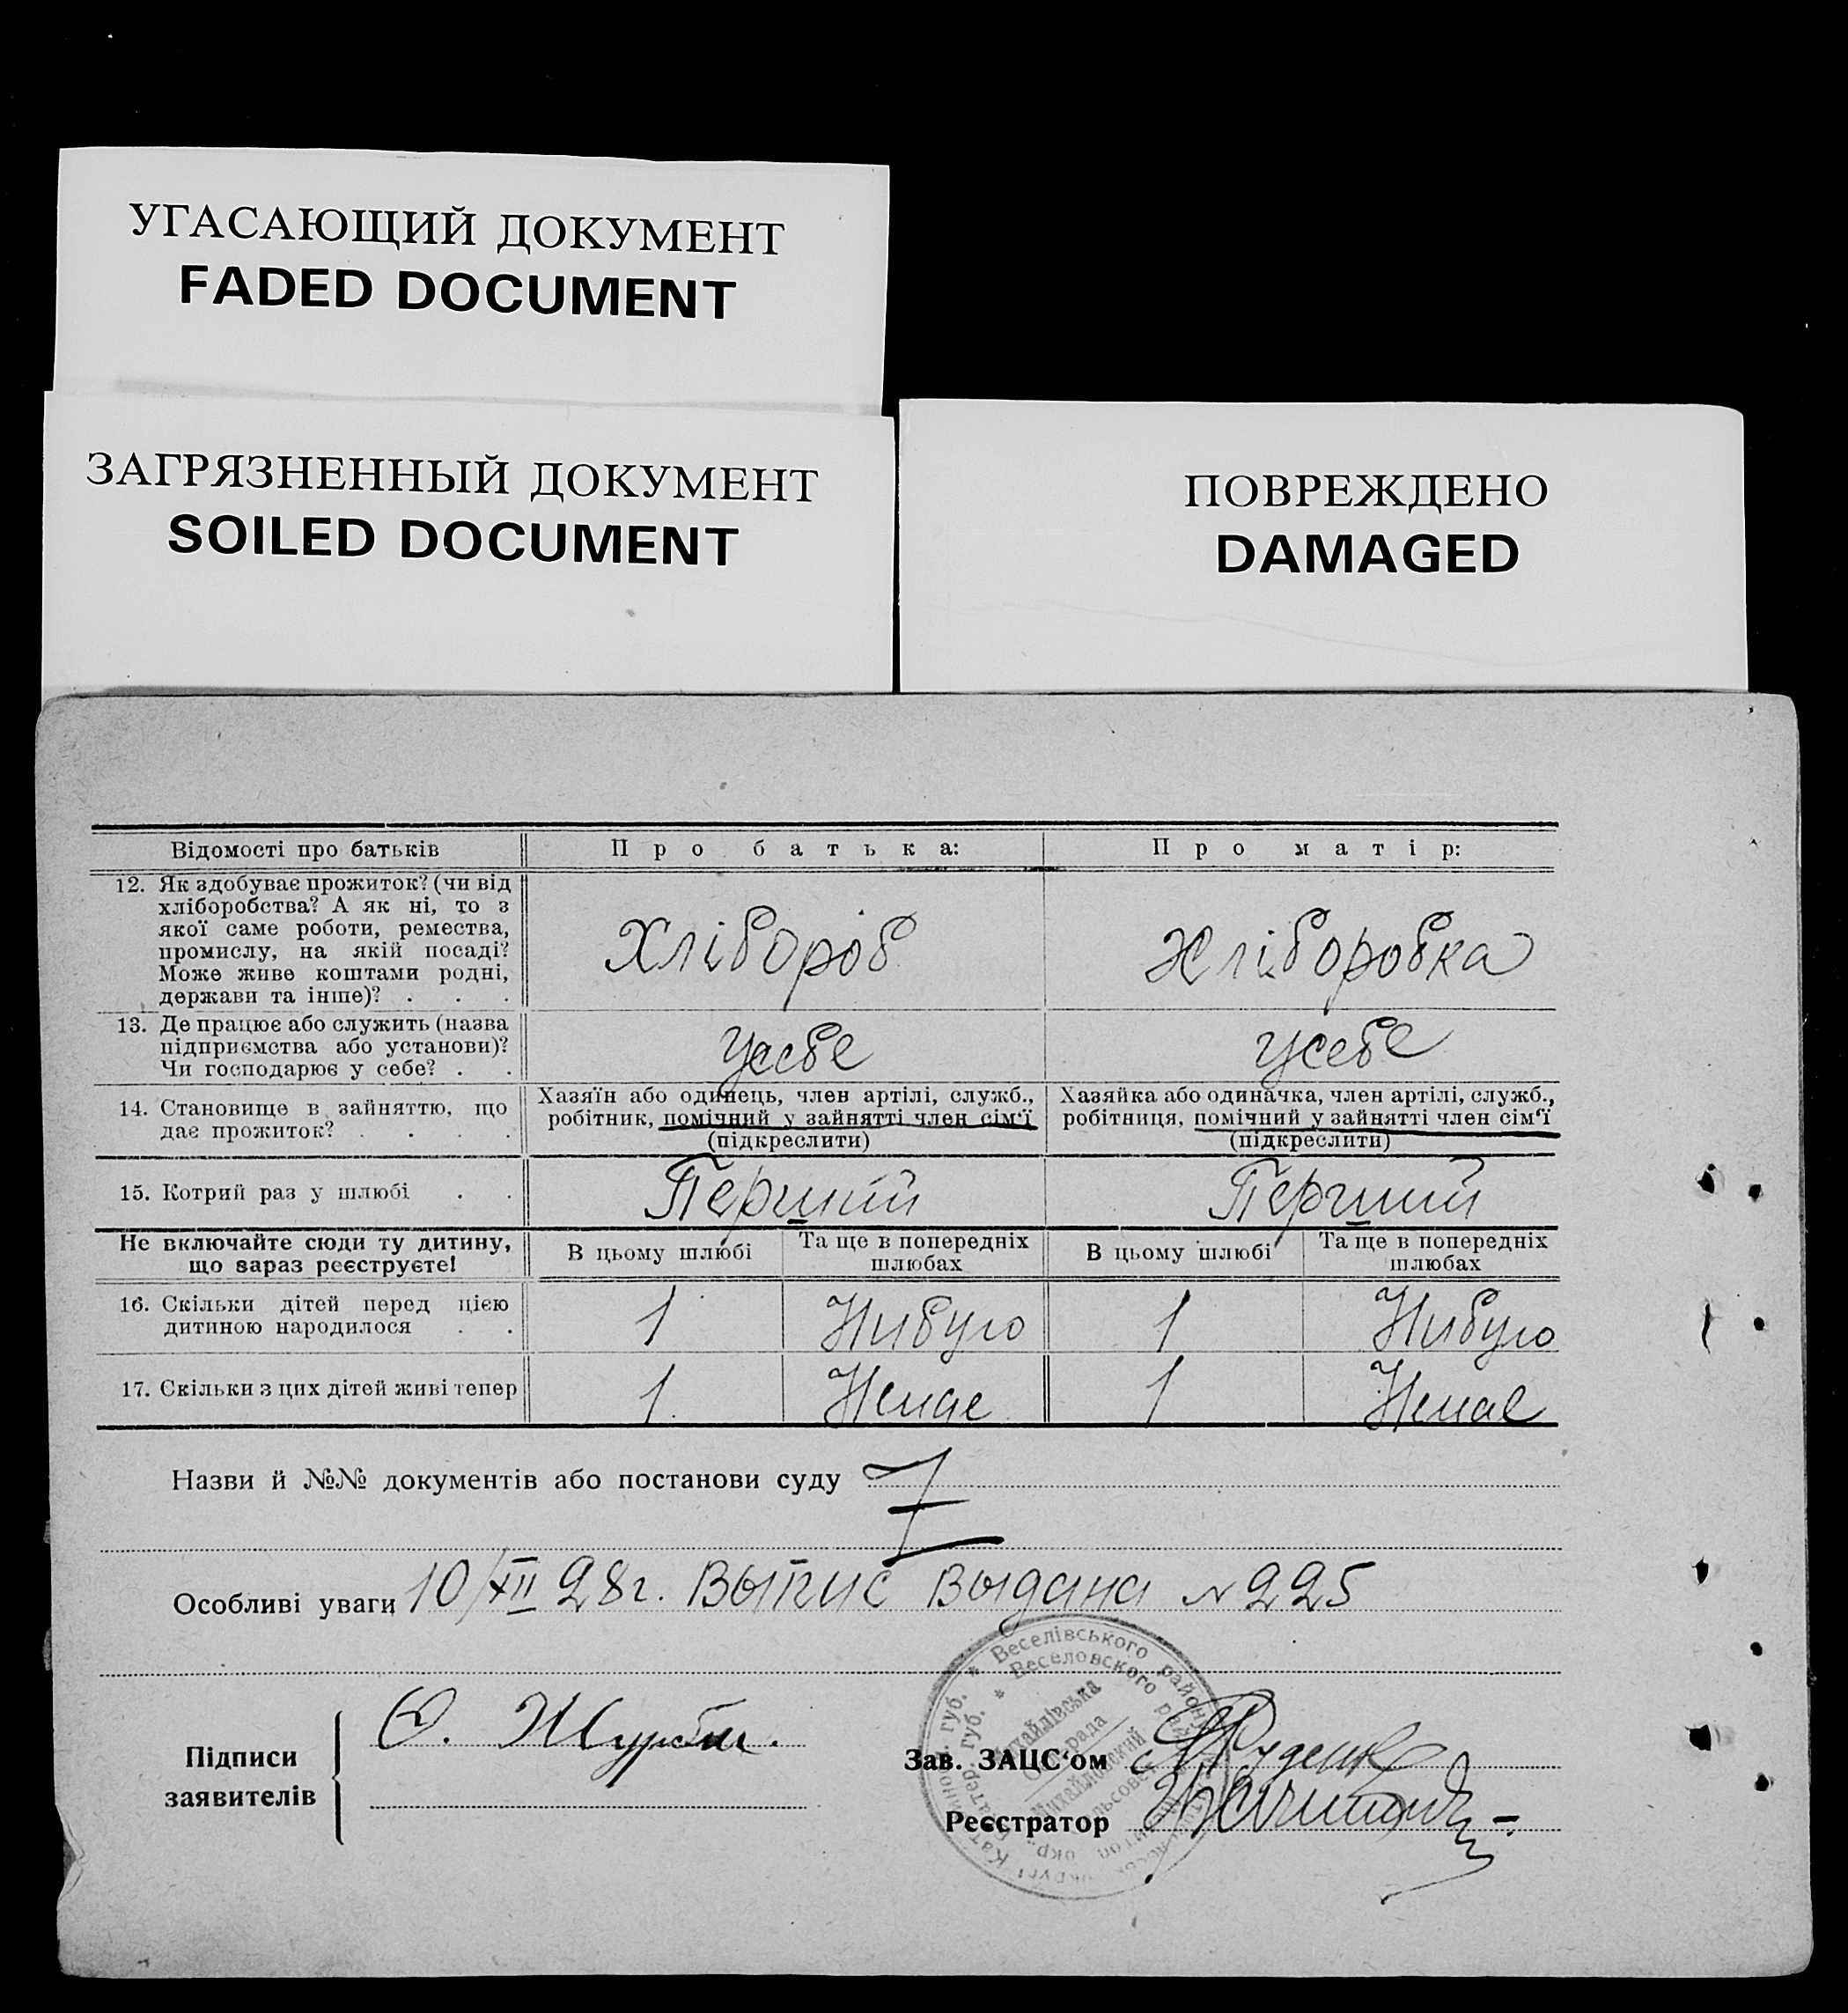 УГАСАЮЩИЙ ДОКУМЕНТ
FADED DOCUMENT
ЗАГРЯЗНЕННЫЙ ДОКУМЕНТ
SOILED DOCUMENT
ПОВРЕЖДЕНО
DAMAGED
Відомості про батьків
Про батька:
Про матір:
12. Як здобуває прожиток? (чи від
хліборобства? А як ні, то з
якої саме роботи, ремества,
промислу, на якій посаді?
Може живе коштами родні,
держави та інше)? . . .
Хлібороб
Хліборобка
13. Де працює або служить (назва
підприємства або установи)?
Чи господарює у себе? . .
Усебе
Усебе
14. Становище в зайняттю, що
дає прожиток? . . . .
Хазяїн або одинець, член артілі, служб.,
робітник, помічний у зайнятті член сім'ї
(підкреслити)
Хазяйка або одиначка, член артілі, служб.,
робітниця, помічний у зайнятті член сім'ї
(підкреслити)
15. Котрий раз у шлюбі . .
Перший
Перший
Не включайте сюди ту дитину,
що зараз реєструєте!
В цьому шлюбі
Та ще в попередніх
шлюбах
В цьому шлюбі
Та ще в попередніх
шлюбах
16. Скільки дітей перед цією
дитиною народилося . .
1
Нибуло
1
Нибуло
17. Скільки з цих дітей живі тепер
1
Немає
1
Немає
Назви й №№ документів або постанови суду
Особливі уваги 10/XII 28г. Выпис выдана № 225
Веселівського району
Веселовского
Михайлівська
рада
Михайловский
сельсовет
Підписи
заявителів
Зав. ЗАЦС'ом Руденко
Реєстратор